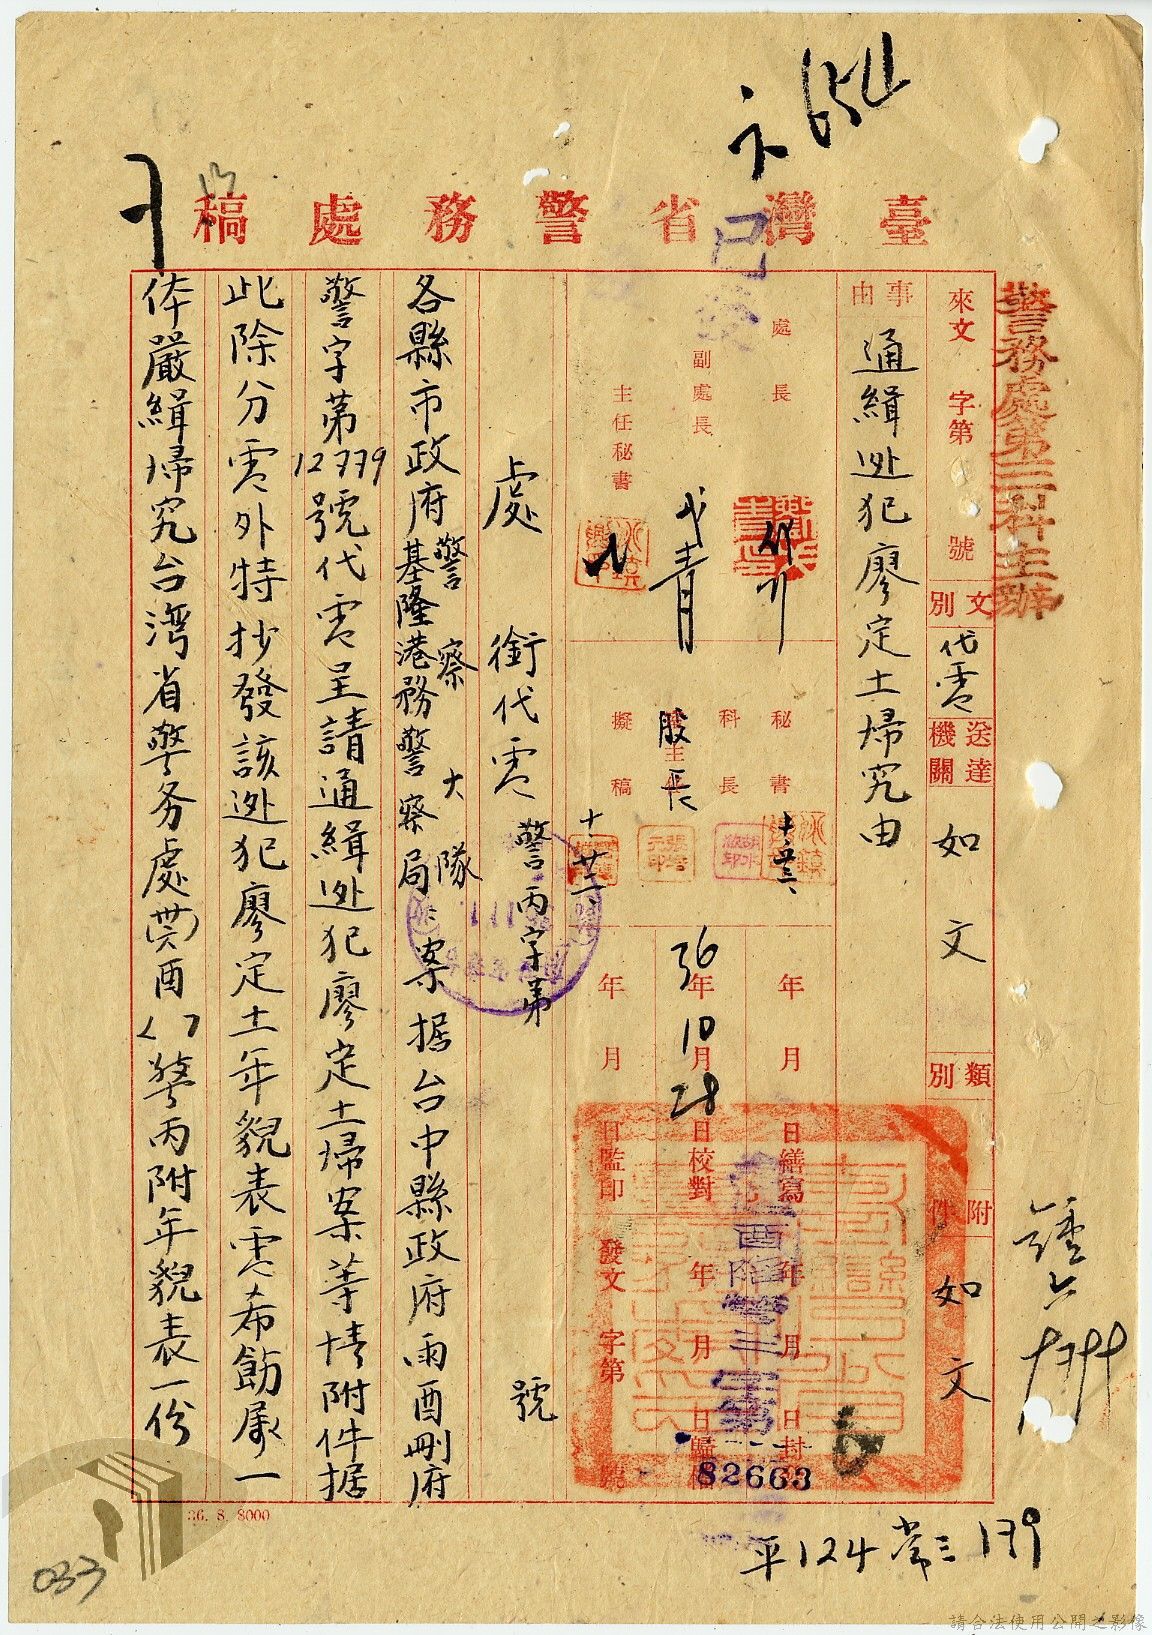 臺灣省警務處稿
警務處第三科主辦
來文 字第 號
文別 代電
送達機關 如文
類別
附件 如文
事由 通緝逃犯廖定土歸究由
處長
副處長
主任秘書
秘書
科長
股長
擬稿
36年10月28日校對
年月日繕寫
年月日監印
年月日封
發文 字第 號
82663
處銜代電 警丙字第 號
各縣市政府警察大隊基隆港務警察局:案据台中縣政府兩酉刪府
警字第12779號代電呈請通緝逃犯廖定土歸案等情附件据
此除分電外特抄發該逃犯廖定土年貌表電希飭屬一
体嚴緝歸究台湾省警务處(兩)酉 警丙附年貌表一份
36. 8. 8000
033
平124常三179
請合法使用公開之影像